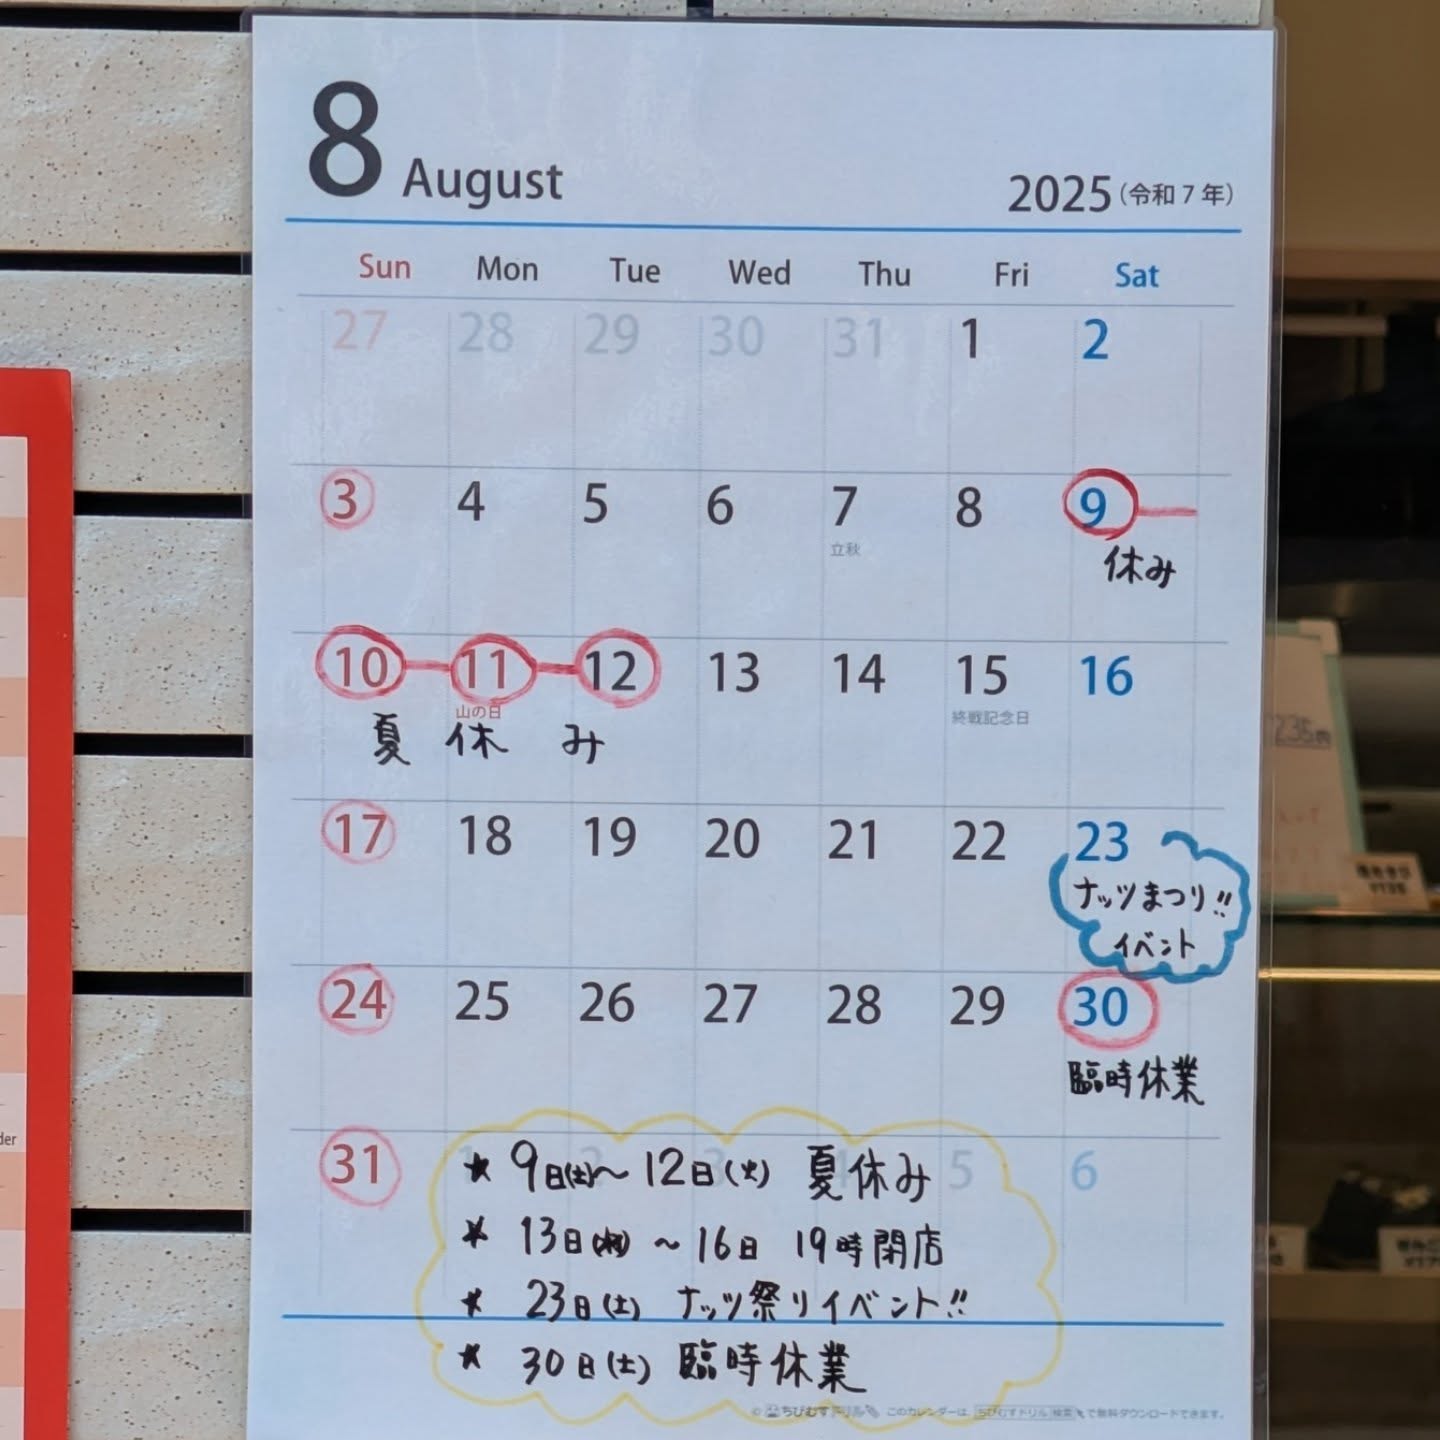 8 August
2025(令和7年)
Sun Mon Tue Wed Thu Fri Sat
27 28 29 30 31 1 2
3 4 5 6 7 8 9
立秋
休み
10 11 12 13 14 15 16
山の日 終戦記念日
夏休み
17 18 19 20 21 22 23
ナッツまつり!!
イベント
24 25 26 27 28 29 30
臨時休業
31 1 2 3 4 5 6
★ 9日(土)～12日(火) 夏休み
★ 13日(水)～16日 19時閉店
★ 23日(土) ナッツ祭りイベント!!
★ 30日(土) 臨時休業
© ちびむすドリル このカレンダーは、ちびむすドリル 検索 で無料ダウンロードできます。
der
235円